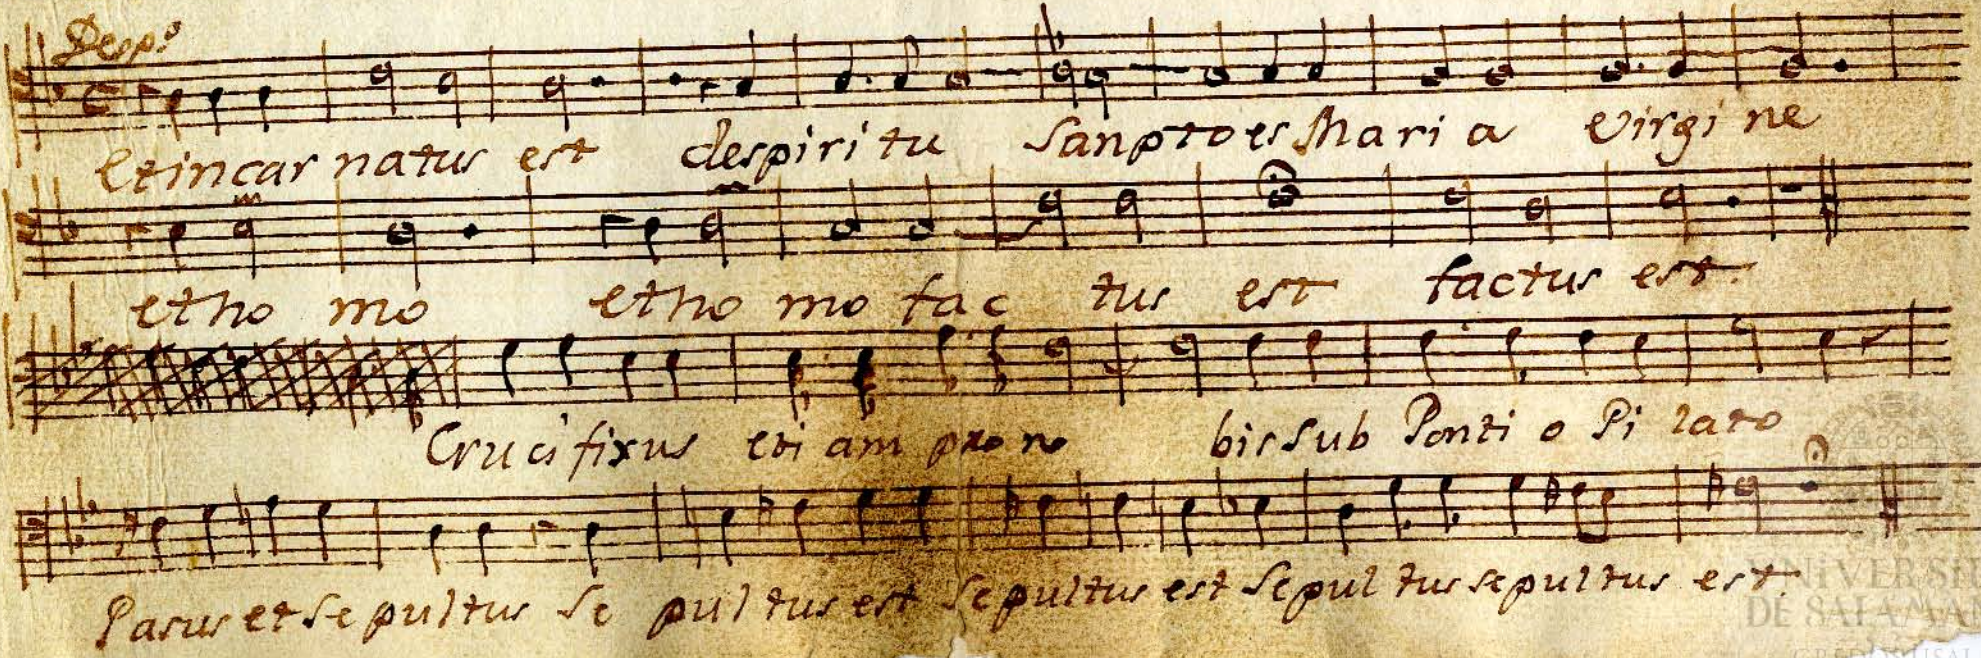 Despº
etincar natus est despiri tu Sanpto es Mari a Virgi ne
etho mo etho mo fac tus est factus est.
Cruci fixus eti am pro no bis sub Ponti o Pi lato
Pasus et se pultus se pul tus est se pultus est se pul tus sepul tus est.
DE SALAMAN
GREDOS.USAL